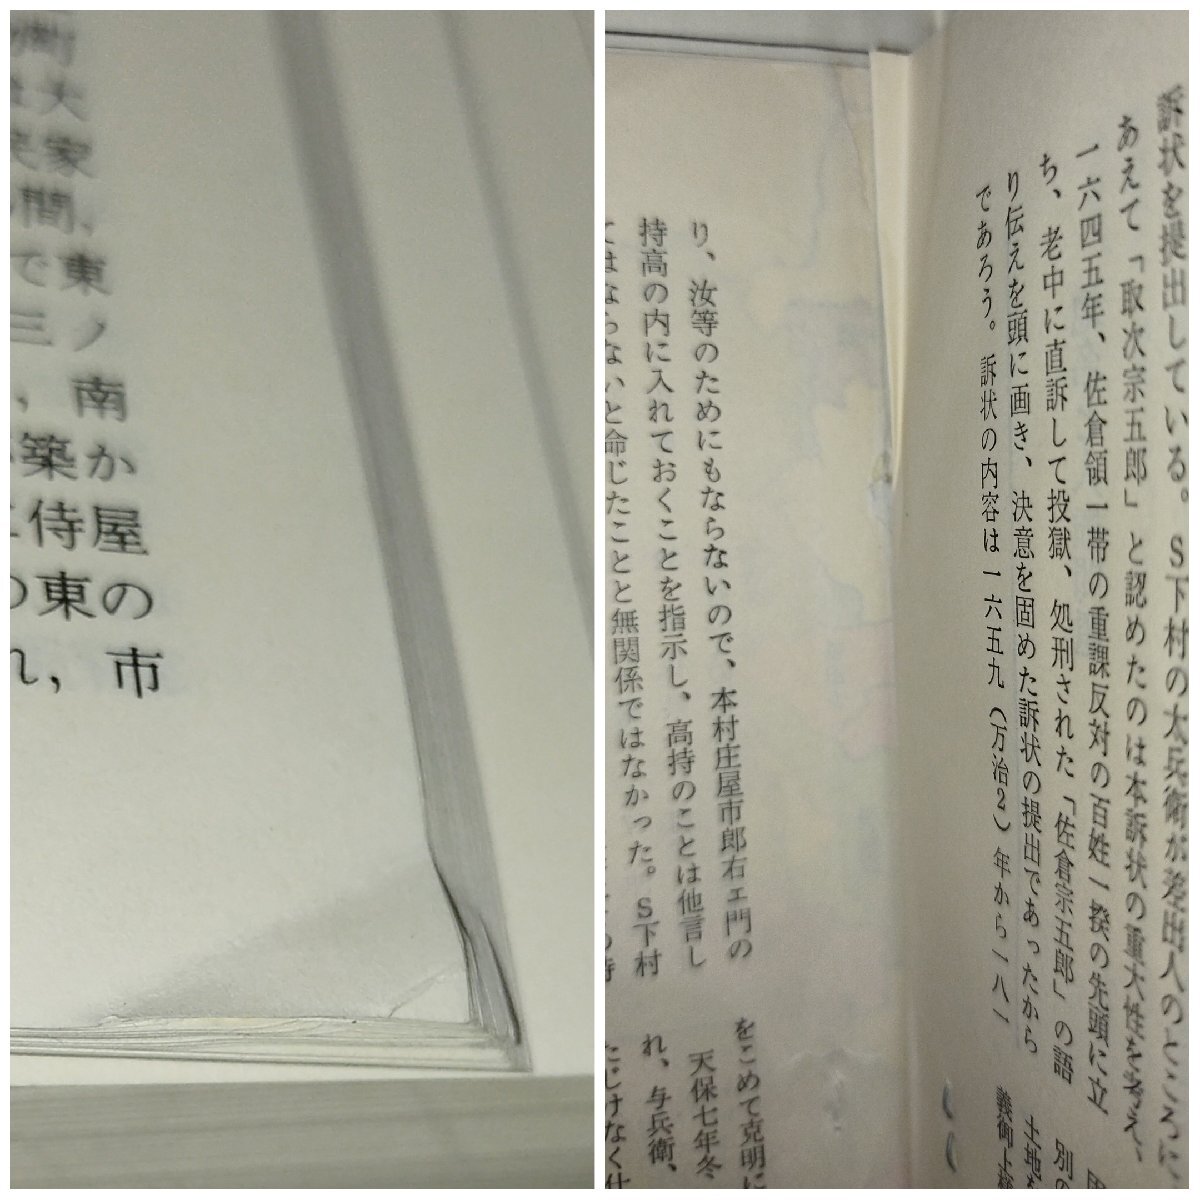 大
家
間、
で東
三ノ
，南
築か
侍屋
の東の
れ，市
訴状を提出している。S下村の太兵衛が差出人のところに
あえて「取次宗五郎」と認めたのは本訴状の重大性を考え、
一六四五年、佐倉領一帯の重課反対の百姓一揆の先頭に立
ち、老中に直訴して投獄、処刑された「佐倉宗五郎」の語
り伝えを頭に画き、決意を固めた訴状の提出であったから
であろう。訴状の内容は一六五九（万治2）年から一八一
り、汝等のためにもならないので、本村庄屋市郎右ェ門の
持高の内に入れておくことを指示し、高持のことは他言し
てはならないと命じたことと無関係ではなかった。S下村
別の
土地を
義御上様
をこめて克明に
天保七年冬
れ、与兵衛、
たじけなく仕